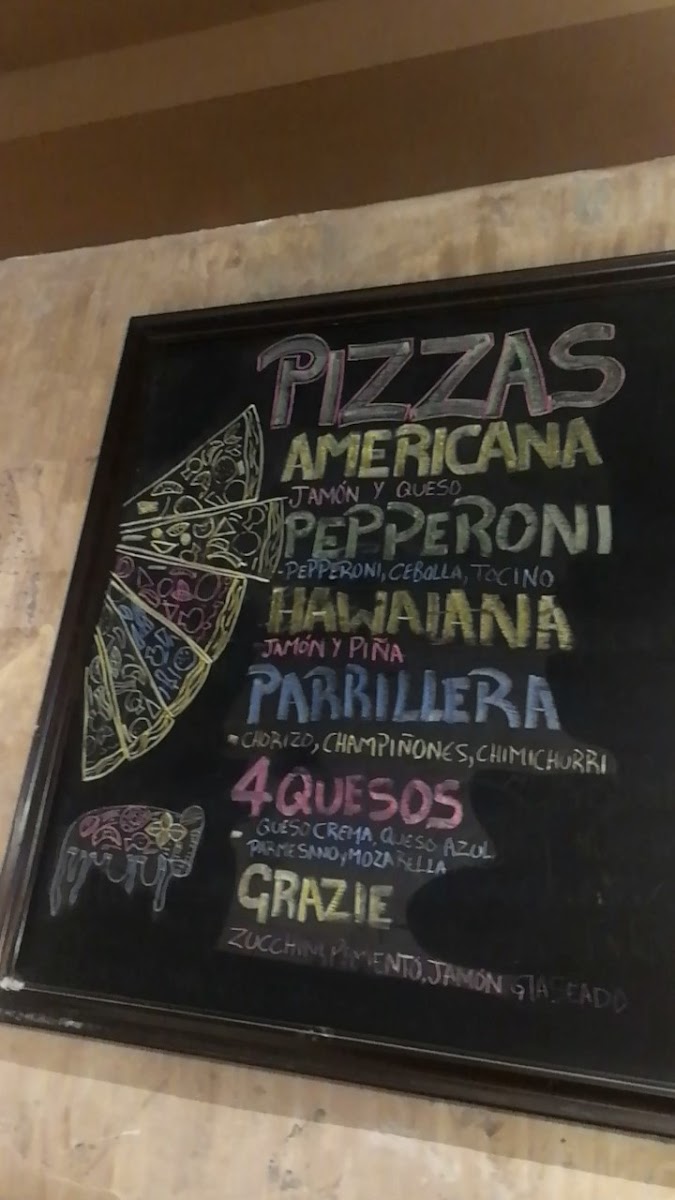 PIZZAS
AMERICANA
JAMÓN Y QUESO
PEPPERONI
-PEPPERONI, CEBOLLA, TOCINO
HAWAIANA
JAMÓN Y PIÑA
PARRILLERA
-CHORIZO, CHAMPIÑONES, CHIMICHURRI
4 QUESOS
- QUESO CREMA, QUESO AZUL
PARMESANO y MOZARELLA
GRAZIE
ZUCCHINI, PIMENTÓ, JAMÓN GLASEADO